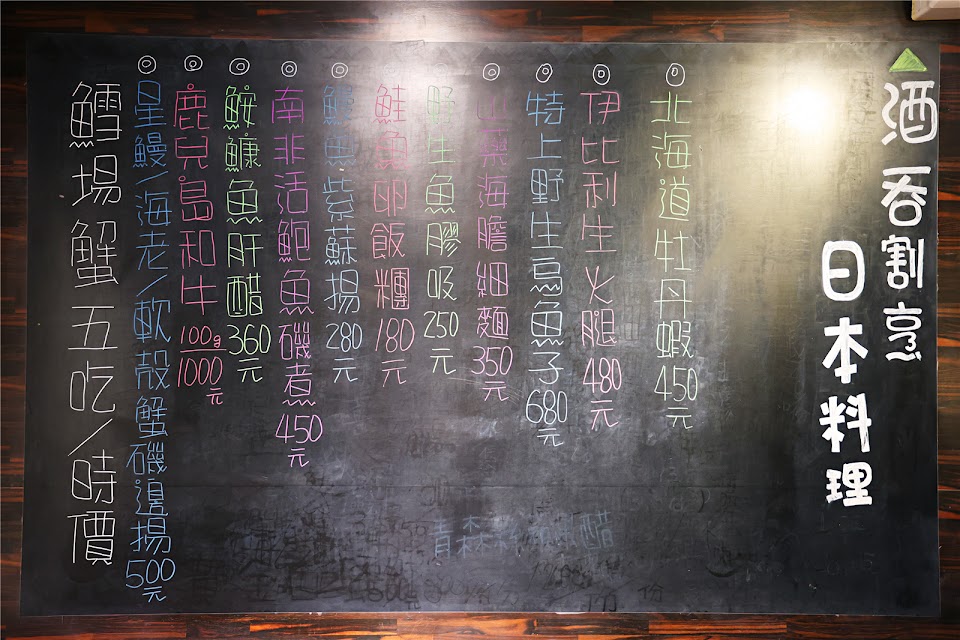 酒吞割烹
日本料理
◎北海道牡丹蝦450元
◎伊比利生火腿480元
◎特上野生烏魚子680元
◎山藥海膽細麵350元
野生魚膠吸250元
鮭魚卵飯糰180元
◎鰻魚紫蘇揚280元
◎南非活鮑魚磯煮450元
◎鮟鱇魚肝醋360元
◎鹿兒島和牛100g/1000元
◎星鰻/海老/軟殼蟹磯邊揚500元
鱈場蟹五吃/時價
青森
醋
份